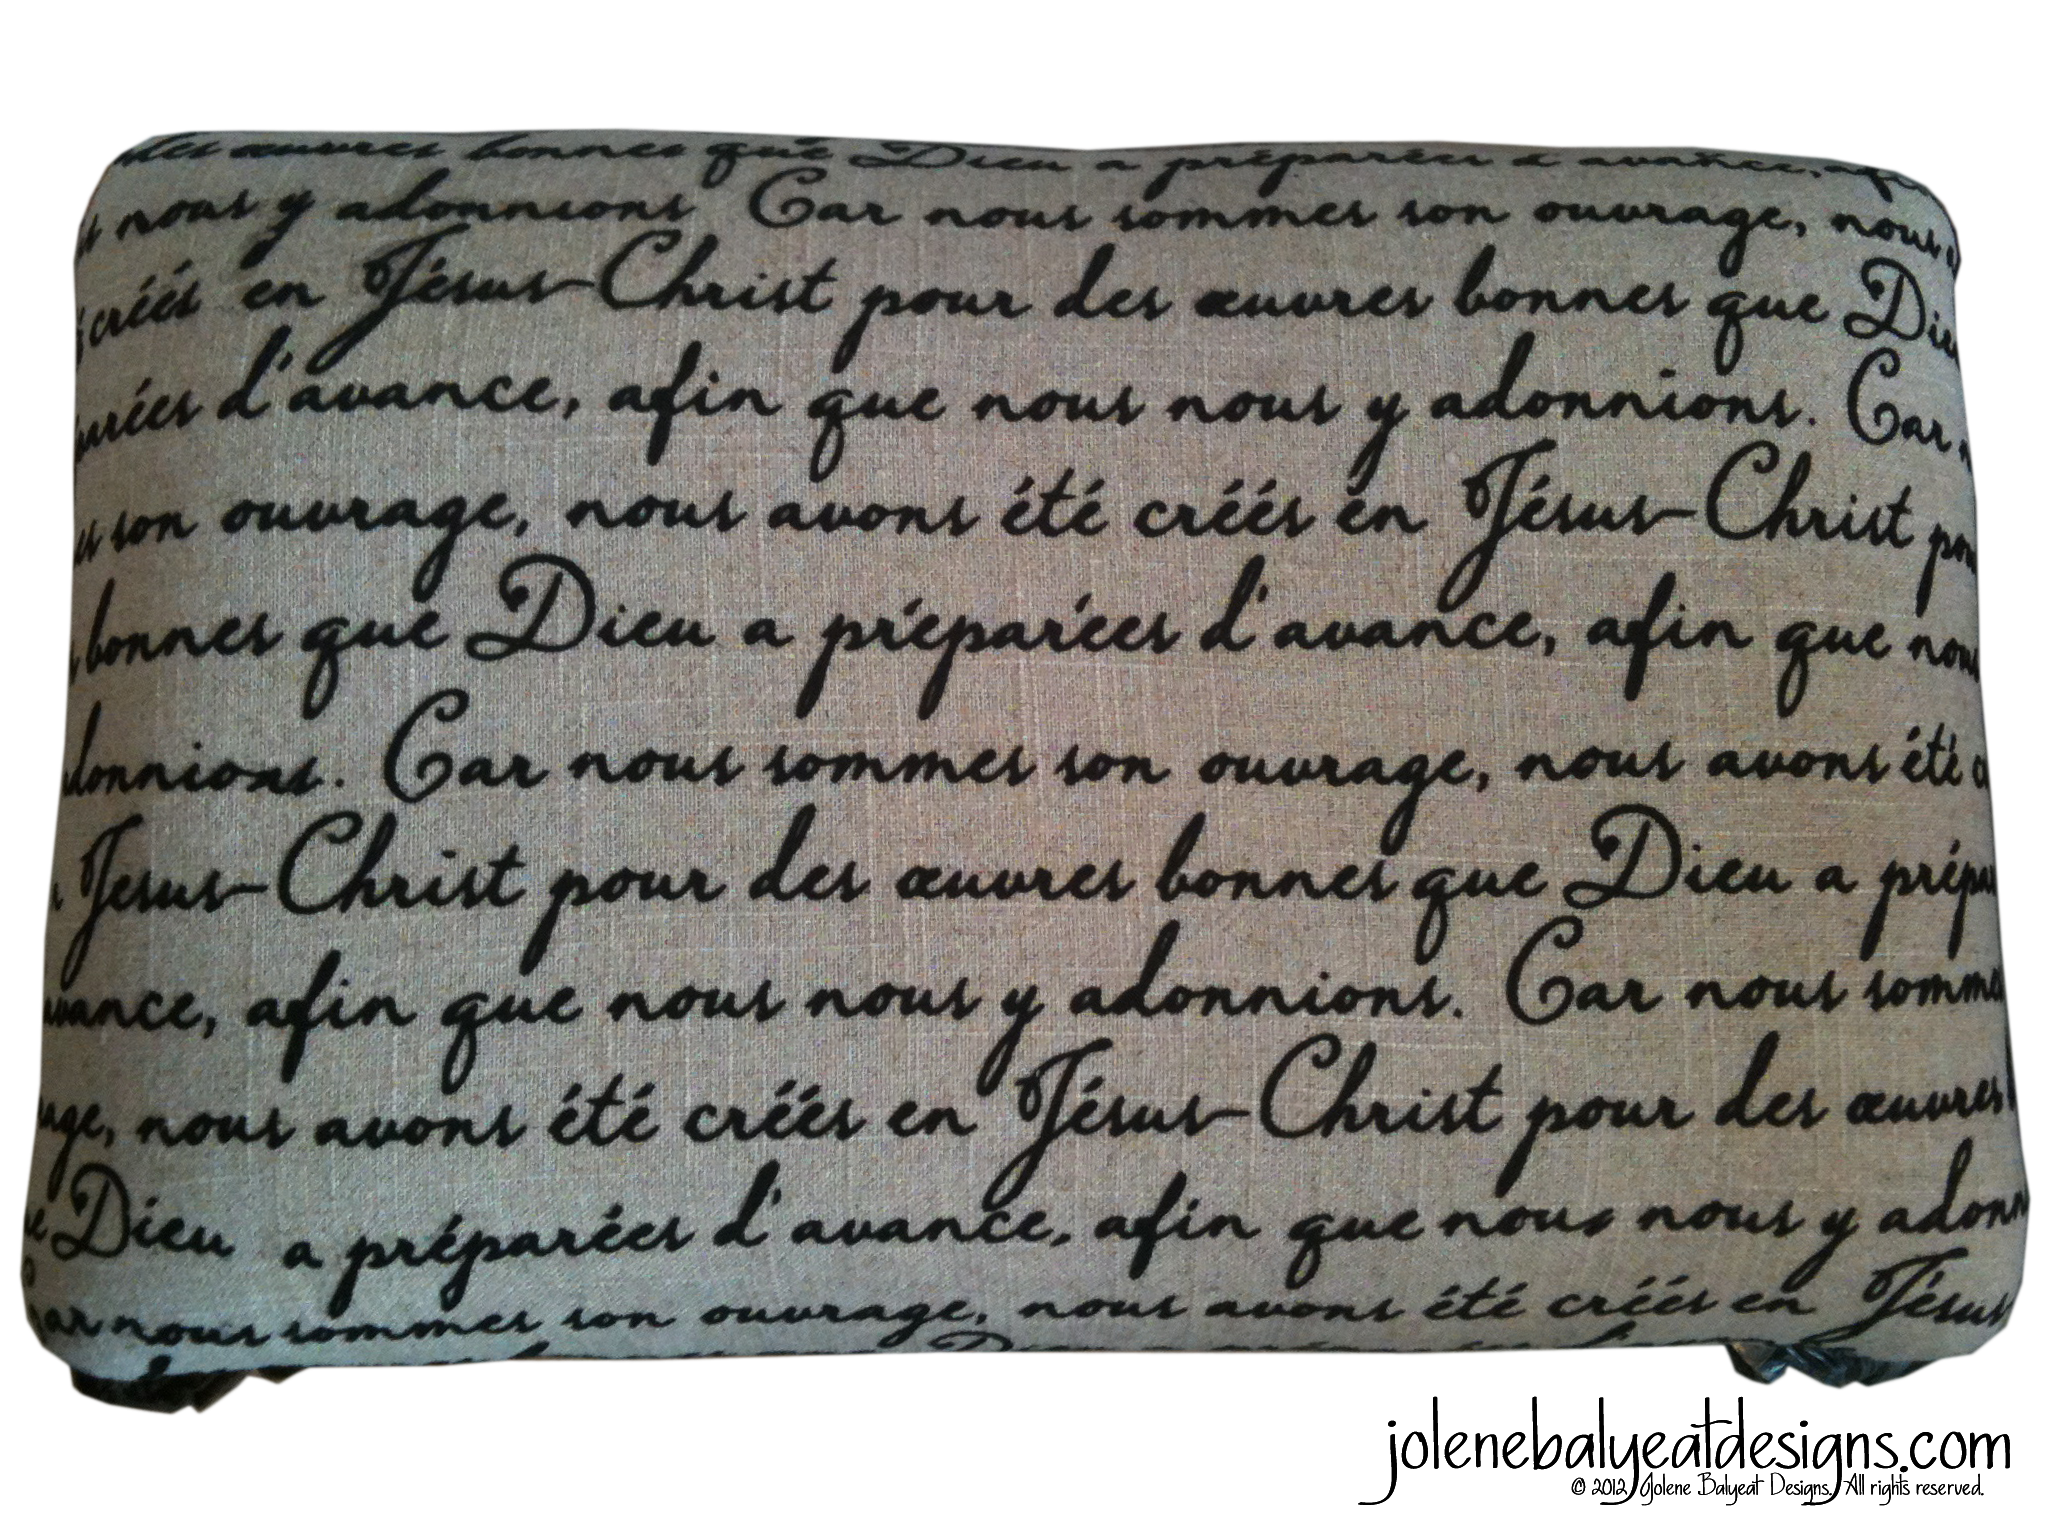 des œuvres bonnes que Dieu a préparées d'avance, afin
nous y adonnions Car nous sommes son ouvrage, nous
créés en Jésus-Christ pour des œuvres bonnes que Dieu
d'avance, afin que nous nous y adonnions. Car
son ouvrage, nous avons été créés en Jésus-Christ
bonnes que Dieu a préparées d'avance, afin que nous
Car nous sommes son ouvrage, nous avons été
Jesus-Christ pour des œuvres bonnes que Dieu a
afin que nous nous y adonnions. Car nous
nous avons été créés en Jésus-Christ pour des œuvres
Dieu a préparées d'avance, afin que nous nous y
nous sommes son ouvrage, nous avons été créés en Jésus
jolenebalyeatdesigns.com
© 2012 Jolene Balyeat Designs. All rights reserved.